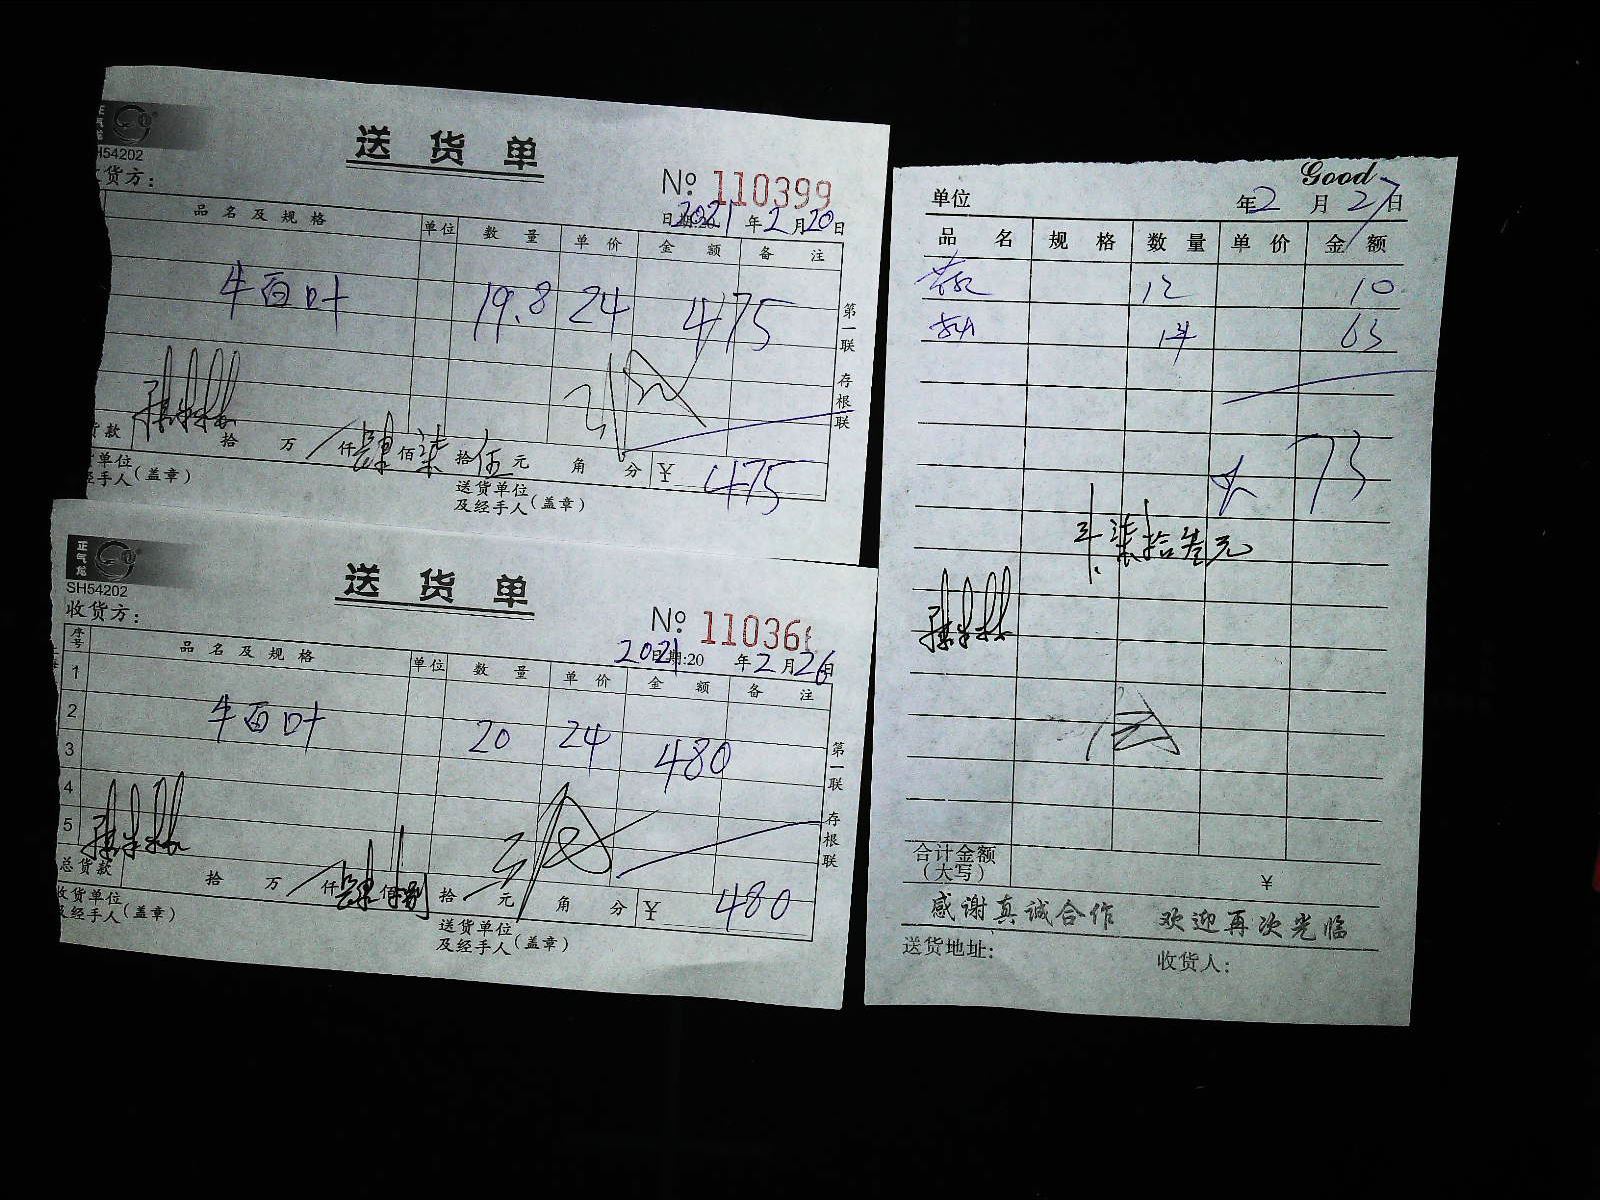 正气龙
H54202
送货单
货方：
№ 110399
日期:20 2021年2月20日
品名及规格 单位 数量 单价 金额 备注
牛百叶 19.8 24 475
第一联 存根联
货款 拾 万 仟肆佰柒拾伍元 角 分 ¥ 475
单位 经手人（盖章）
送货单位 及经手人（盖章）
正气龙
SH54202
送货单
收货方：
№ 11036
2021 日期:20 年2月26日
序号 品名及规格 单位 数量 单价 金额 备注
1
2 牛百叶 20 24 480
3
4
5
第一联 存根联
总货款 拾 万 仟肆佰捌拾 元 角 分 ¥ 480
收货单位 及经手人（盖章）
送货单位 及经手人（盖章）
Good
单位 年2月27日
品名 规格 数量 单价 金额
12 10
1件 63
73
柒拾叁元
合计金额（大写） ¥
感谢真诚合作 欢迎再次光临
送货地址： 收货人：